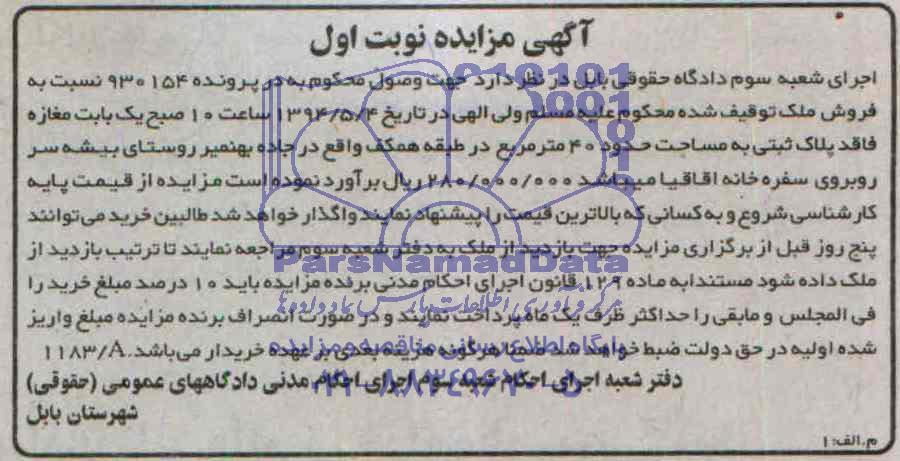 آگهی مزایده نوبت اول
اجرای شعبه سوم دادگاه حقوقی بابل در نظر دارد جهت وصول محکوم به در پرونده ۹۳۰۱۵۴ نسبت به
فروش ملک توقیف شده محکوم علیه مسلم ولی الهی در تاریخ ۱۳۹۴/۵/۴ ساعت ۱۰ صبح یک بابت مغازه
فاقد پلاک ثبتی به مساحت حدود ۴۰ مترمربع در طبقه همکف واقع در جاده بهنمیر روستای بیشه سر
روبروی سفره خانه اقاقیا میباشد ۲۸۰/۰۰۰/۰۰۰ ریال برآورد نموده است مزایده از قیمت پایه
کارشناسی شروع و به کسانی که بالاترین قیمت را پیشنهاد نمایند واگذار خواهد شد طالبین خرید می‌توانند
پنج روز قبل از برگزاری مزایده جهت بازدید از ملک به دفتر شعبه سوم مراجعه نمایند تا ترتیب بازدید از
ملک داده شود مستندا به ماده ۱۲۹ قانون اجرای احکام مدنی برنده مزایده باید ۱۰ درصد مبلغ خرید را
فی المجلس و مابقی را حداکثر ظرف یک ماه پرداخت نمایند و در صورت انصراف برنده مزایده مبلغ واریز
شده اولیه در حق دولت ضبط خواهد شد ضمنا هرگونه هزینه بعدی بر عهده خریدار می‌باشد. ۱۱۸۳/A
دفتر شعبه اجرای احکام شعبه سوم اجرای احکام مدنی دادگاههای عمومی (حقوقی)
شهرستان بابل
م.الف: ۱
ParsNamadData
پایگاه اطلاع رسانی مناقصه و مزایده